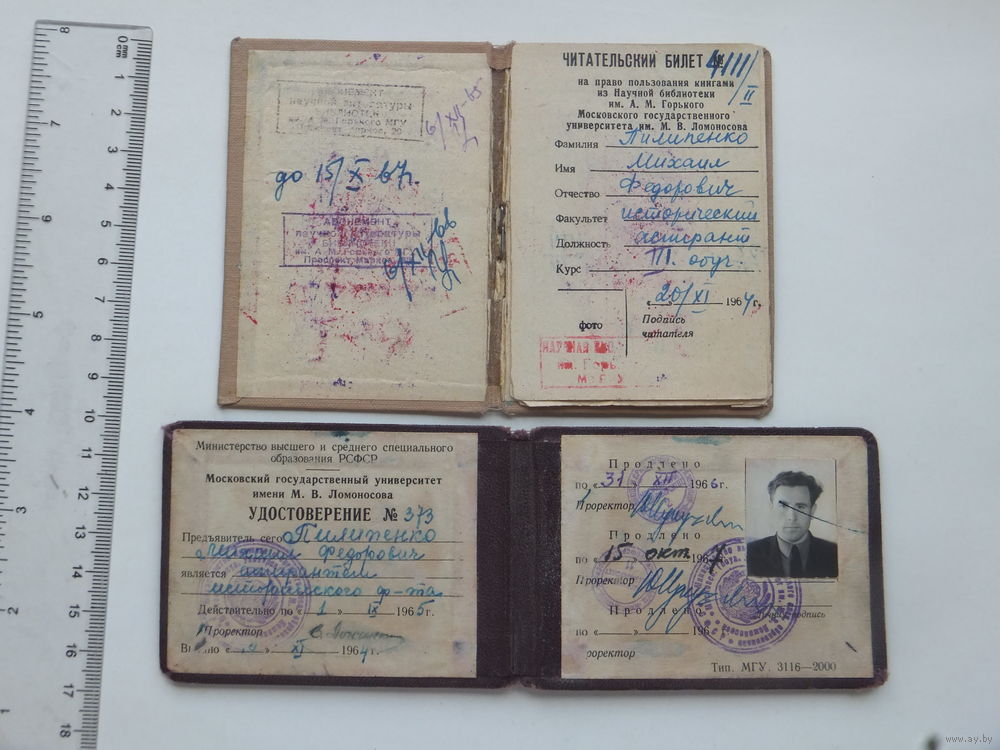 АБОНЕМЕНТ
научной литературы
БИБЛИОТЕКИ
им. А. М. Горького МГУ
Проспект Маркса, 20
6/XI-65
до 15/X 67г.
АБОНЕМЕНТ
научной литературы
БИБЛИОТЕКИ
им. А. М. Горького МГУ
Проспект Маркса
6/XII-66
ЧИТАТЕЛЬСКИЙ БИЛЕТ №
на право пользования книгами
из Научной библиотеки
им. А. М. Горького
Московского государственного
университета им. М. В. Ломоносова
Фамилия Пилипенко
Имя Михаил
Отчество Федорович
Факультет исторический
Должность аспирант
Курс III. обуч.
«20/XI 1964г.
фото
Подпись
читателя
НАУЧНАЯ
им. Горь
МГУ
Министерство высшего и среднего специального
образования РСФСР
Московский государственный университет
имени М. В. Ломоносова
УДОСТОВЕРЕНИЕ № 373
Предъявитель сего Пилипенко
Михаил Федорович
является аспирантом
исторического ф-та
Действительно по «1» IX 1965г.
Проректор
XI 1964г.
Продлено
по «31» XII 1966г.
Проректор
Продлено
по «15 окт.
Проректор
Продлено
по «   »   196
роректор
Личная подпись
Тип. МГУ. 3116—2000
0 mm
cm
1
2
3
4
5
6
7
8
9
10
11
12
13
14
15
16
17
18
8
7
6
5
4
3
2
1
www.ay.by